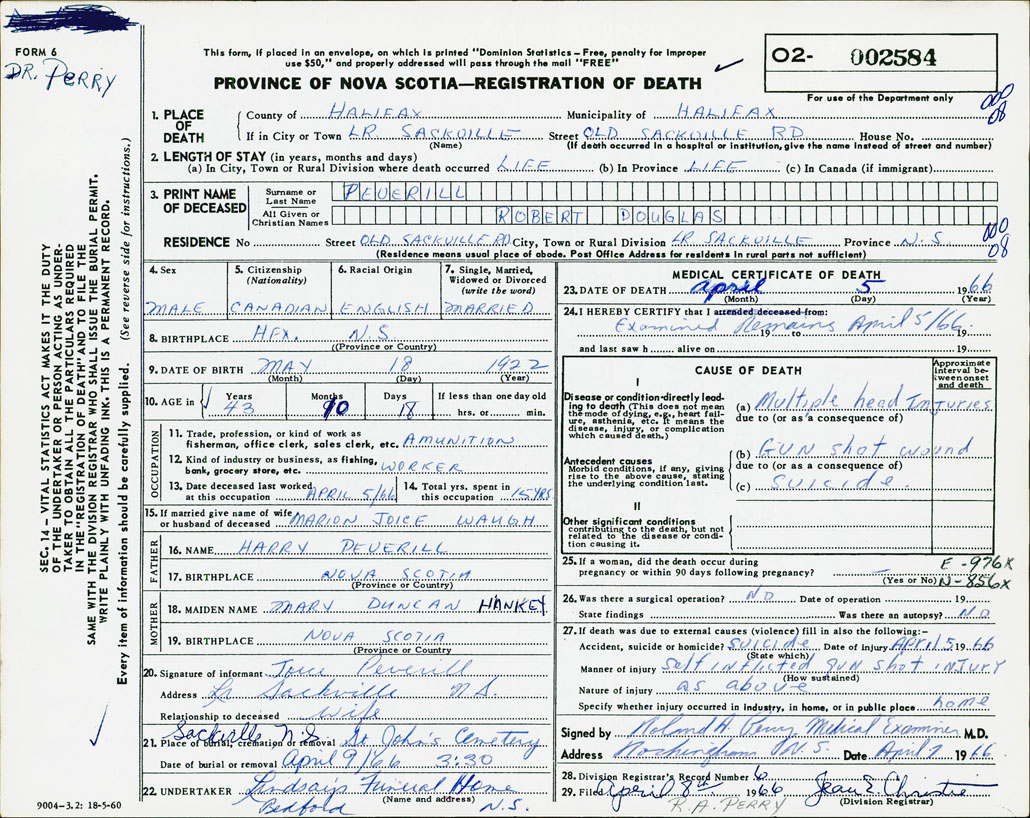 FORM 6
DR. PERRY
This form, if placed in an envelope, on which is printed "Dominion Statistics – Free, penalty for improper
use $50," and properly addressed will pass through the mail "FREE"
PROVINCE OF NOVA SCOTIA—REGISTRATION OF DEATH
O2- 002584
For use of the Department only
000
08
SEC. 14 – VITAL STATISTICS ACT MAKES IT THE DUTY
OF THE UNDERTAKER OR PERSON ACTING AS UNDER-
TAKER TO OBTAIN ALL THE PARTICULARS REQUIRED
IN THE "REGISTRATION OF DEATH" AND TO FILE THE
SAME WITH THE DIVISION REGISTRAR WHO SHALL ISSUE THE BURIAL PERMIT.
WRITE PLAINLY WITH UNFADING INK. THIS IS A PERMANENT RECORD.
Every item of information should be carefully supplied. (See reverse side for instructions.)
1. PLACE OF DEATH
County of HALIFAX Municipality of HALIFAX
If in City or Town LR SACKVILLE Street OLD SACKVILLE RD House No.
(Name) (If death occurred in a hospital or institution, give the name instead of street and number)
2. LENGTH OF STAY (in years, months and days)
(a) In City, Town or Rural Division where death occurred LIFE (b) In Province LIFE (c) In Canada (if immigrant)
3. PRINT NAME OF DECEASED
Surname or Last Name PEVERILL
All Given or Christian Names ROBERT DOUGLAS
000
08
RESIDENCE No Street OLD SACKVILLE RD City, Town or Rural Division LR SACKVILLE Province N.S
(Residence means usual place of abode. Post Office Address for residents in rural parts not sufficient)
4. Sex
MALE
5. Citizenship
(Nationality)
CANADIAN
6. Racial Origin
ENGLISH
7. Single, Married,
Widowed or Divorced
(write the word)
MARRIED
8. BIRTHPLACE HFX. N.S.
(Province or Country)
9. DATE OF BIRTH MAY 18 1922
(Month) (Day) (Year)
10. AGE in Years Months Days If less than one day old
43 10 18 hrs. or min.
OCCUPATION
11. Trade, profession, or kind of work as
fisherman, office clerk, sales clerk, etc. AMUNITION
12. Kind of industry or business, as fishing,
bank, grocery store, etc. WORKER
13. Date deceased last worked
at this occupation APRIL 5/66
14. Total yrs. spent in
this occupation 15 YRS
15. If married give name of wife
or husband of deceased MARION JOICE WAUGH
FATHER
16. NAME HARRY PEVERILL
17. BIRTHPLACE NOVA SCOTIA
(Province or Country)
MOTHER
18. MAIDEN NAME MARY DUNCAN HANKEY
19. BIRTHPLACE NOVA SCOTIA
(Province or Country)
20. Signature of informant Joice Peverill
Address Lr Sackville N.S.
Relationship to deceased wife
Sackville N.S.
21. Place of burial, cremation or removal St John's Cemetery
Date of burial or removal April 9/66 3:30
22. UNDERTAKER Lindsay's Funeral Home
(Name and address)
Bedford N.S.
9004–3.2: 18-5-60
MEDICAL CERTIFICATE OF DEATH
23. DATE OF DEATH April 5 1966
(Month) (Day) (Year)
24. I HEREBY CERTIFY that I attended deceased from:
Examined Remains April 5/66
19 to 19
and last saw h alive on 19
CAUSE OF DEATH
Approximate
interval be-
tween onset
and death
I
Disease or condition directly lead-
ing to death (This does not mean
the mode of dying, e.g., heart fail-
ure, asthenia, etc. It means the
disease, injury, or complication
which caused death.)
(a) Multiple head Injuries
due to (or as a consequence of)
Antecedent causes
Morbid conditions, if any, giving
rise to the above cause, stating
the underlying condition last.
(b) Gun shot wound
due to (or as a consequence of)
(c) Suicide.
II
Other significant conditions
contributing to the death, but not
related to the disease or condi-
tion causing it.
25. If a woman, did the death occur during
pregnancy or within 90 days following pregnancy? –
(Yes or No)
E-976X
N-856X
26. Was there a surgical operation? NO Date of operation 19
State findings Was there an autopsy? NO
27. If death was due to external causes (violence) fill in also the following:–
Accident, suicide or homicide? Suicide Date of injury April 5 1966
(State which)
Manner of injury Self inflicted gun shot injury
(How sustained)
Nature of injury as above
Specify whether injury occurred in industry, in home, or in public place home
Signed by Roland A. Perry Medical Examiner M.D.
Address Rockingham N.S. Date April 7 1966
28. Division Registrar's Record Number 6
29. Filed April 8th 1966 Jean E. Christie
(Division Registrar)
R.A. PERRY